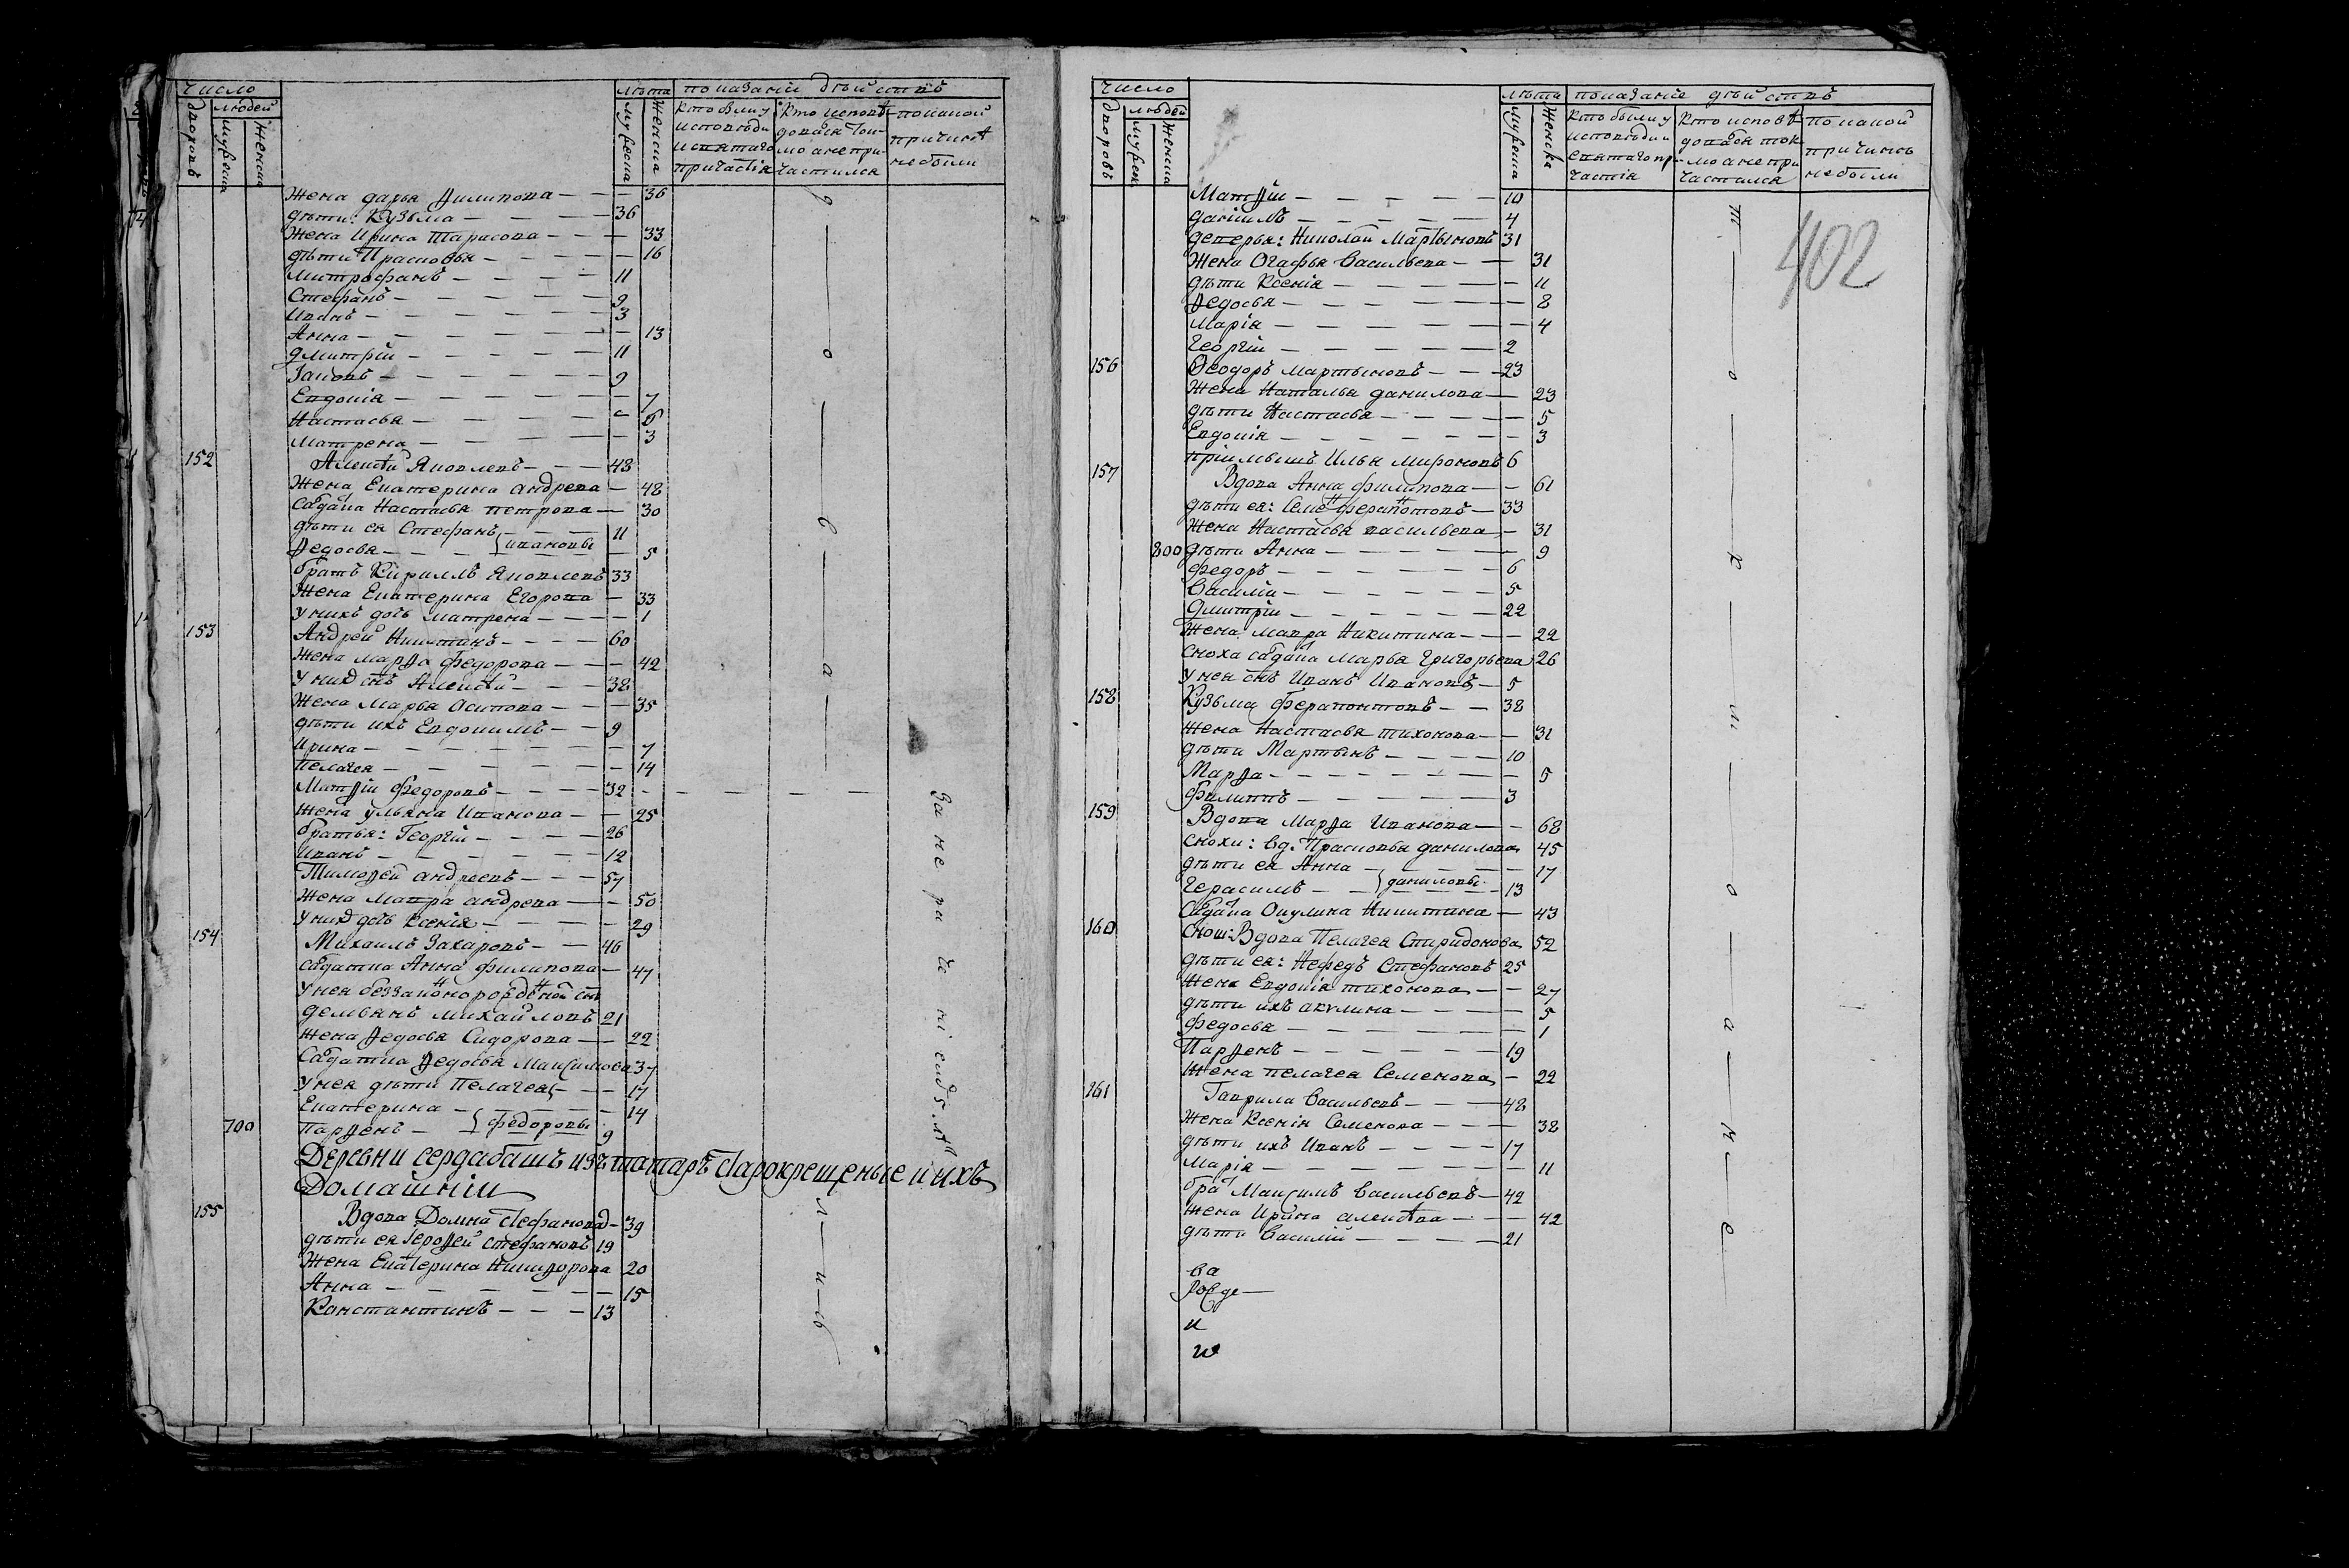 число
людей
дворовъ
мужеска
женска
лѣта
мужеска
женска
показаніи дѣйствъ
кто были у исповѣди и святаго причастія
кто исповѣдовался токмо а не причастился
по какой причинѣ не были
Жена дарья Филипова — — 36
дѣти: Кузьма — — 36
Жена Ирина Тарасова — — 33
дѣти Прасковья — — 16
Митрофанъ — — 11
Стефанъ — — 9
Иванъ — — 3
Анна — — 13
дмитрій — — 11
Іаковъ — — 9
Евдокія — — 7
Настасья — — 6
Матрена — — 3
152 Алексѣй Яковлевъ — — 48
Жена Екатерина андрева — 48
Салдатка Настасья петрова — 30
дѣти ея Стефанъ — — 11
Ѳедосья — — ивановы — 5
братъ Кириллъ Яковлевъ 33
Жена Екатерина Егорова — 33
у нихъ дочь матрена — — 1
153 Андрей Никитинъ — — 60
Жена марѳа федорова — — 42
у них снъ Алексѣй — — 38
Жена Марья Осипова — — 35
дѣти ихъ Евдокимъ — — 9
Ирина — — 7
Пелагея — — 14
Матѳій Федоровъ — — 32
Жена ульяна Иванова — — 25
братья: Георгій — — 26
Иванъ — — 12
Тимоѳей андреевъ — — 57
Жена Мавра андрева — — 50
у них дочь Ксенія — — 29
154 Михаилъ Захаровъ — — 46
салдатка Анна филипова — 47
у нея беззаконорожденной снъ
демьянъ михайловъ 21
Жена Ѳедосья Сидорова — — 22
Салдатка Ѳедосья Максимова 37
у нея дѣти Пелагея — — 17
Екатерина — — 14
700 Парѳенъ — федоровы 9
Деревни сердабашъ изъ татаръ старокрещеные и ихъ
Домашніи
155 Вдова Домна стефанова — 39
дѣти ея Іероѳей стефановъ 19
Жена Екатерина Никиѳорова 20
Анна — — 15
Константинъ — — 13
о
б
а
л
и
сь
За нерачениемъ
число
людей
дворовъ
мужеск
женска
лѣта
мужеска
женска
показаніе дѣйствъ
кто были у исповѣди и святаго причастія
кто исповѣдовался токмо а не причастился
по какой причинѣ не были
402
Матѳій — — 10
даніилъ — — 4
деверья: Николай Мартыновъ 31
Жена Огафья Васильева — — 31
дѣти Ксенія — — 11
Ѳедосья — — 8
Марія — — 4
Георгій — — 2
156 Ѳеодоръ мартыновъ — — 23
Жена Наталья данилова — 23
дѣти Настасья — — 5
Евдокія — — 3
пріимышъ Илья мироновъ 6
157 Вдова Анна филипова — — 61
дѣти ея: Семенъ ферапонтовъ — 33
Жена Настасья васильева — 31
800 дѣти Анна — — 9
Федоръ — — 6
Василій — — 5
Дмитрій — — 22
Жена мавра Никитина — — 22
сноха салдатка Марья григорьева 26
у нея снъ Иванъ Ивановъ — 5
158 Кузьма Ферапонтовъ — — 38
Жена Настасья тихонова — 31
дѣти Мартынъ — — 10
Марѳа — — 5
филиппъ — — 3
159 Вдова Марѳа Иванова — — 68
снохи: вд. Прасковья данилова 45
дѣти ея Анна — — 17
Герасимъ — — даниловы — 13
Салдатка Окулина Никитина — 43
160 Вдова Пелагея Спиридонова 52
дѣти ея: Нефедъ Стефановъ 25
Жена Евдокія тихонова — — 27
дѣти ихъ акулина — — 5
Федосья — — 1
Парѳенъ — — 19
Жена пелагея Семенова — 22
161 Гаврила Васильевъ — — 48
Жена Ксенія Семенова — — 38
дѣти ихъ Иванъ — — 17
Марія — — 11
бра Максимъ Васильевъ — 42
Жена Ирина алексѣева — — 42
дѣти Василій — — 21
т
о
к
м
о
а
н
е
ва
Рожде—
и